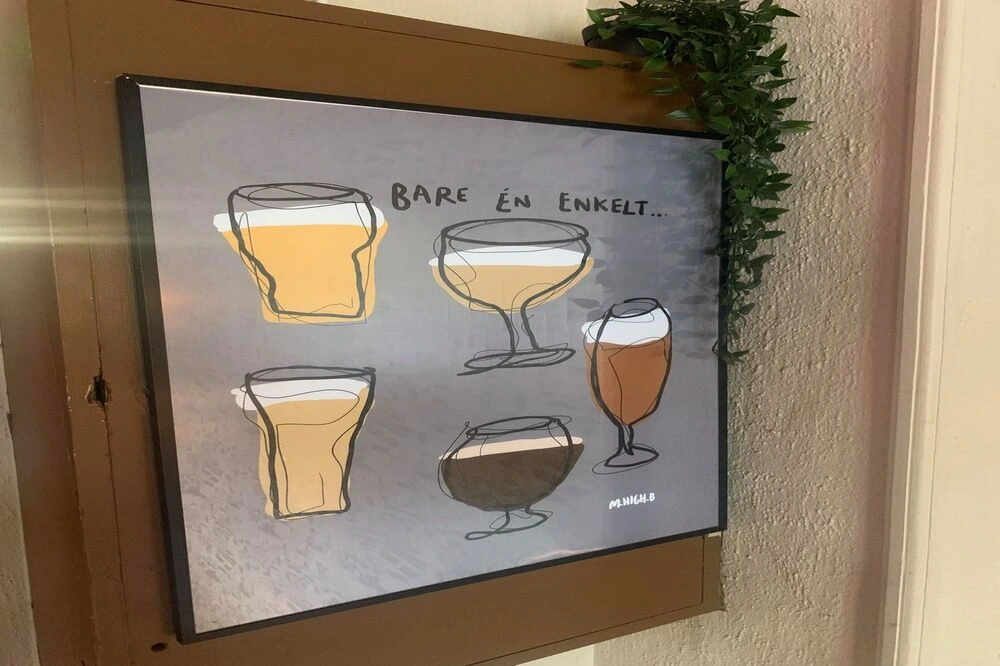 BARE ÉN ENKELT...
M.HIGH.B